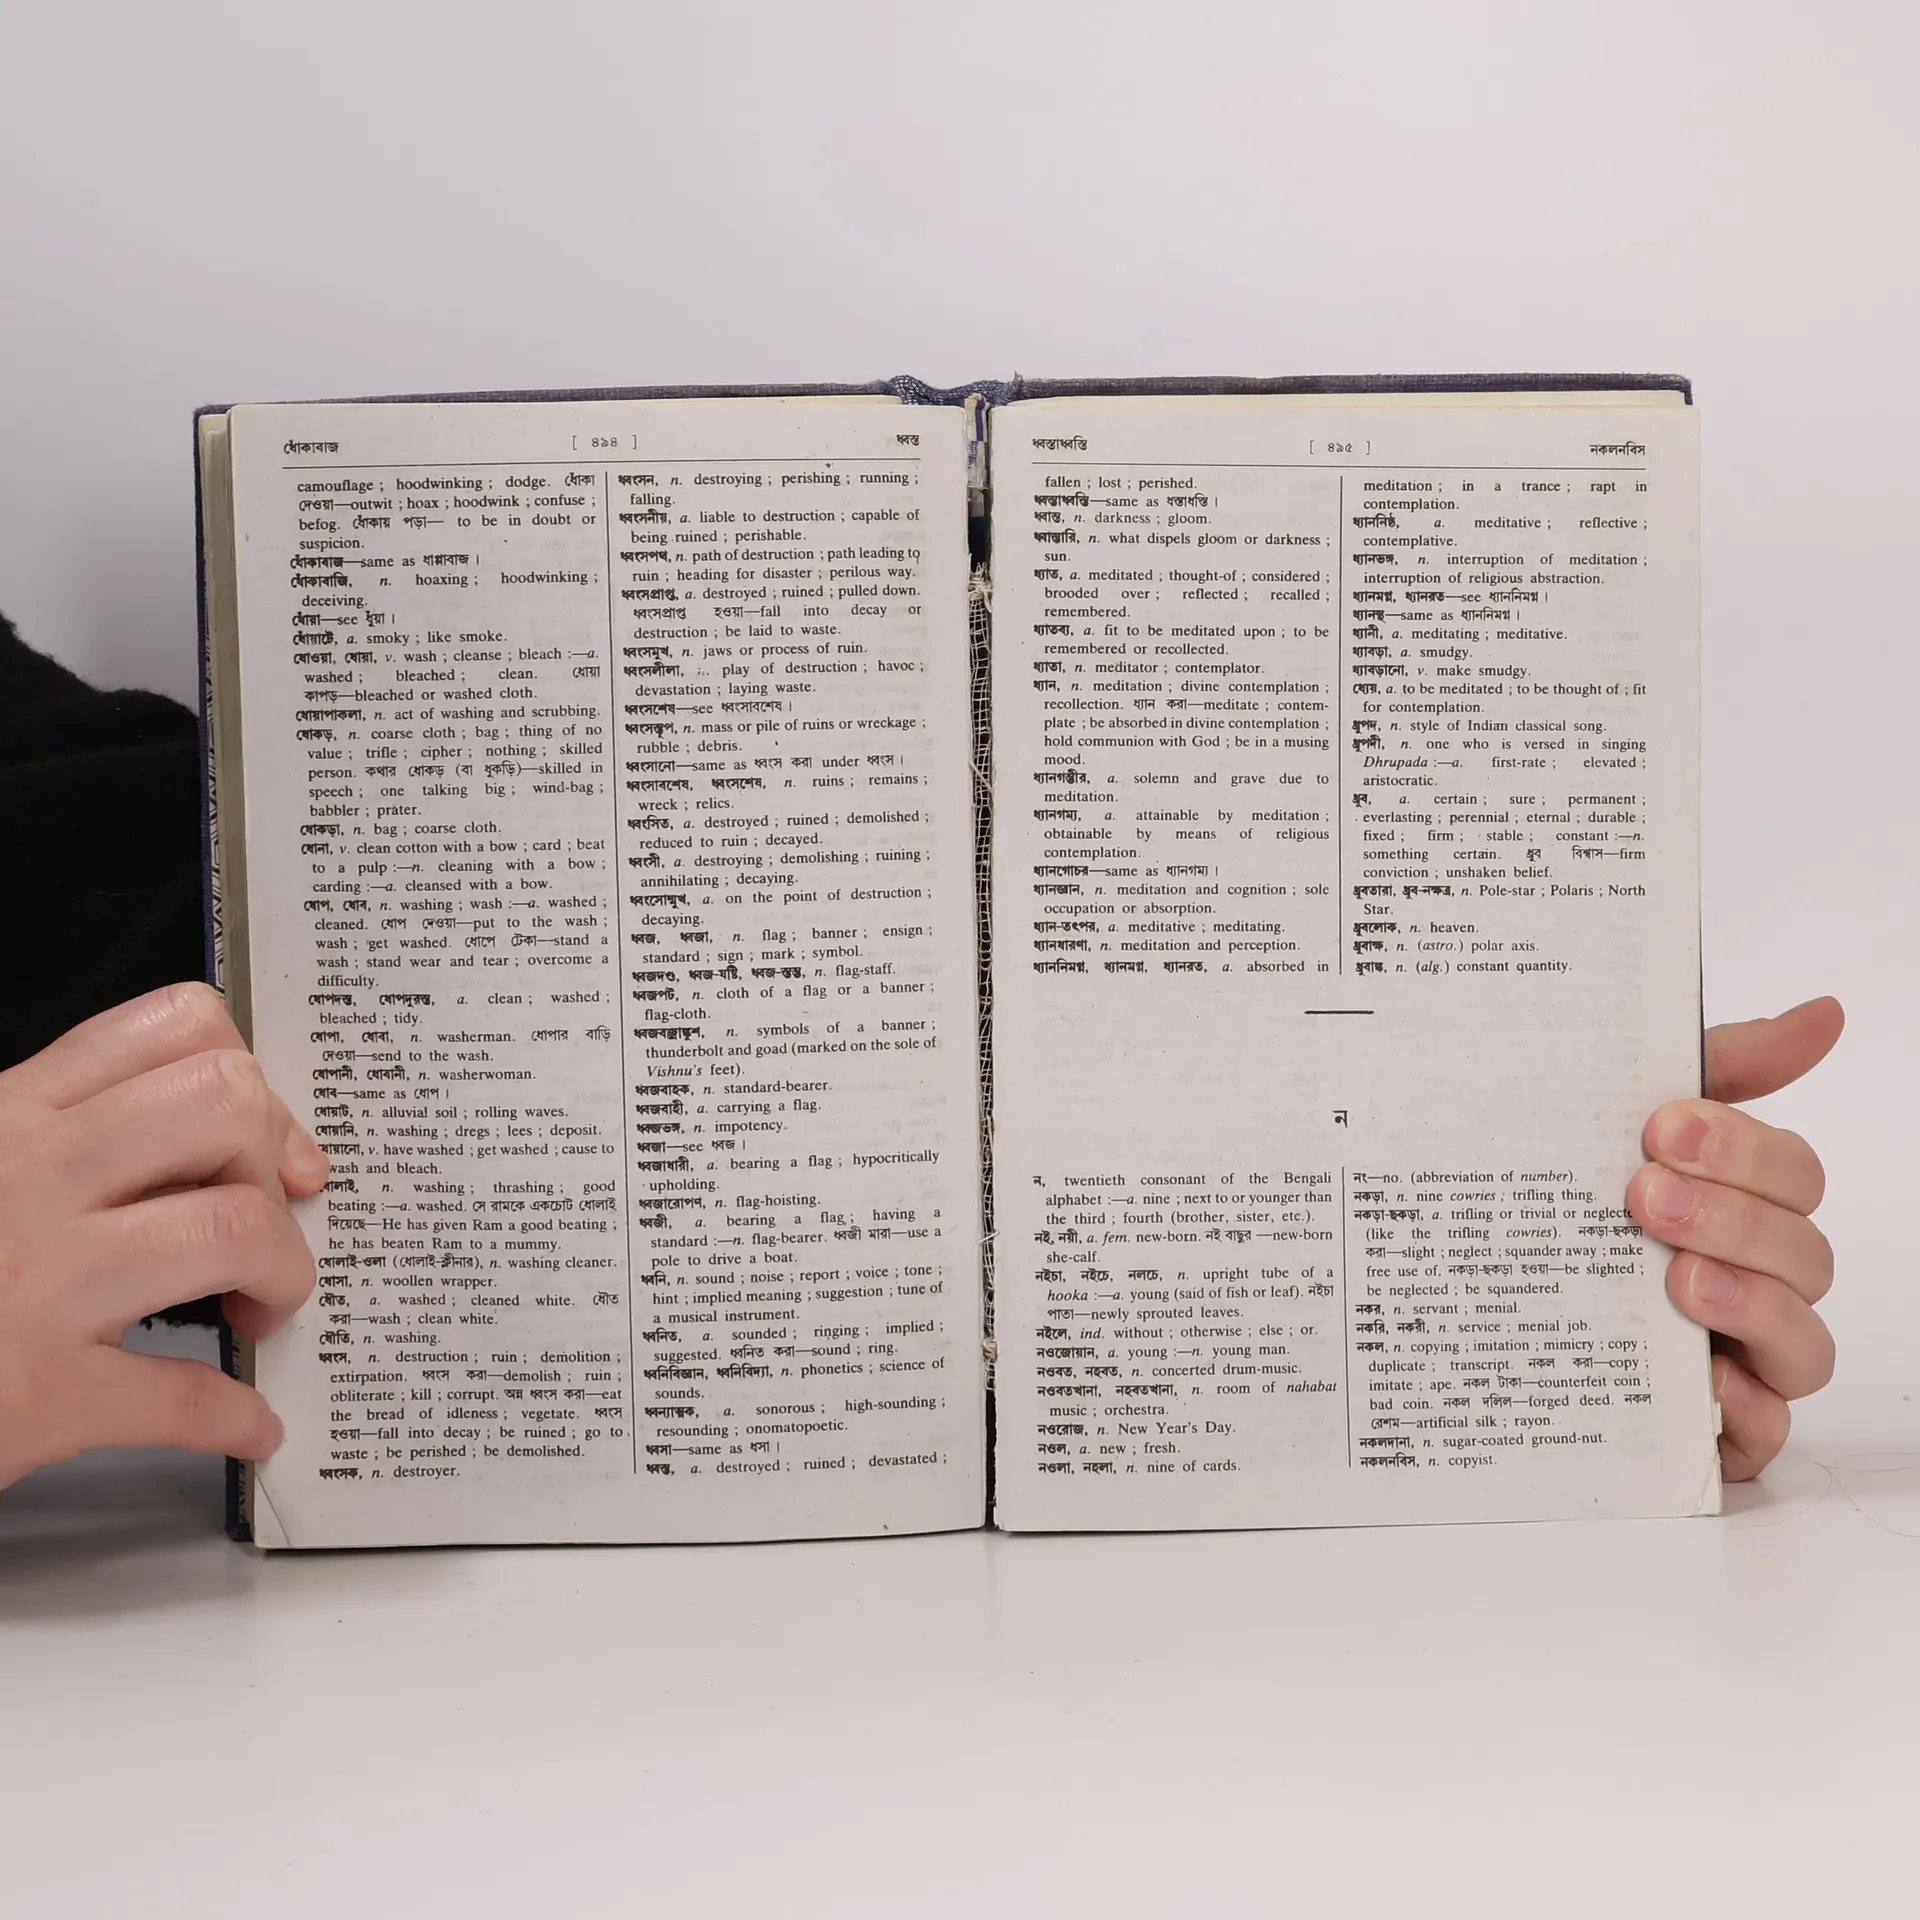 ধোঁকাবাজ [ ৪৯৪ ] ধ্বস্ত
camouflage ; hoodwinking ; dodge. ধোঁকা
দেওয়া—outwit ; hoax ; hoodwink ; confuse ;
befog. ধোঁকায় পড়া— to be in doubt or
suspicion.
ধোঁকাবাজ—same as ধাপ্পাবাজ ।
ধোঁকাবাজি, n. hoaxing ; hoodwinking ;
deceiving.
ধোঁয়া—see ধুঁয়া ।
ধোঁয়াটে, a. smoky ; like smoke.
ধোওয়া, ধোয়া, v. wash ; cleanse ; bleach :—a.
washed ; bleached ; clean. ধোয়া
কাপড়—bleached or washed cloth.
ধোয়াপাকলা, n. act of washing and scrubbing.
ধোকড়, n. coarse cloth ; bag ; thing of no
value ; trifle ; cipher ; nothing ; skilled
person. কথার ধোকড় (বা ধুকড়ি)—skilled in
speech ; one talking big ; wind-bag ;
babbler ; prater.
ধোকড়া, n. bag ; coarse cloth.
ধোনা, v. clean cotton with a bow ; card ; beat
to a pulp :—n. cleaning with a bow ;
carding :—a. cleansed with a bow.
ধোপ, ধোব, n. washing ; wash :—a. washed ;
cleaned. ধোপ দেওয়া—put to the wash ;
wash ; get washed. ধোপে টেকা—stand a
wash ; stand wear and tear ; overcome a
difficulty.
ধোপদস্ত, ধোপদুরস্ত, a. clean ; washed ;
bleached ; tidy.
ধোপা, ধোবা, n. washerman. ধোপার বাড়ি
দেওয়া—send to the wash.
ধোপানী, ধোবানী, n. washerwoman.
ধোব—same as ধোপ ।
ধোয়াট, n. alluvial soil ; rolling waves.
ধোয়ানি, n. washing ; dregs ; lees ; deposit.
ধোয়ানো, v. have washed ; get washed ; cause to
wash and bleach.
ধোলাই, n. washing ; thrashing ; good
beating :—a. washed. সে রামকে একচোট ধোলাই
দিয়েছে—He has given Ram a good beating ;
he has beaten Ram to a mummy.
ধোলাই-ওলা (ধোলাই-ক্লীনার), n. washing cleaner.
ধোসা, n. woollen wrapper.
ধৌত, a. washed ; cleaned white. ধৌত
করা—wash ; clean white.
ধৌতি, n. washing.
ধ্বংস, n. destruction ; ruin ; demolition ;
extirpation. ধ্বংস করা—demolish ; ruin ;
obliterate ; kill ; corrupt. অন্ন ধ্বংস করা—eat
the bread of idleness ; vegetate. ধ্বংস
হওয়া—fall into decay ; be ruined ; go to
waste ; be perished ; be demolished.
ধ্বংসক, n. destroyer.
ধ্বংসন, n. destroying ; perishing ; running ;
falling.
ধ্বংসনীয়, a. liable to destruction ; capable of
being ruined ; perishable.
ধ্বংসপথ, n. path of destruction ; path leading to
ruin ; heading for disaster ; perilous way.
ধ্বংসপ্রাপ্ত, a. destroyed ; ruined ; pulled down.
ধ্বংসপ্রাপ্ত হওয়া—fall into decay or
destruction ; be laid to waste.
ধ্বংসমুখ, n. jaws or process of ruin.
ধ্বংসলীলা, play of destruction ; havoc ;
devastation ; laying waste.
ধ্বংসশেষ—see ধ্বংসাবশেষ ।
ধ্বংসস্তূপ, n. mass or pile of ruins or wreckage ;
rubble ; debris.
ধ্বংসানো—same as ধ্বংস করা under ধ্বংস ।
ধ্বংসাবশেষ, ধ্বংসশেষ, n. ruins ; remains ;
wreck ; relics.
ধ্বংসিত, a. destroyed ; ruined ; demolished ;
reduced to ruin ; decayed.
ধ্বংসী, a. destroying ; demolishing ; ruining ;
annihilating ; decaying.
ধ্বংসোন্মুখ, a. on the point of destruction ;
decaying.
ধ্বজ, ধ্বজা, n. flag ; banner ; ensign ;
standard ; sign ; mark ; symbol.
ধ্বজদণ্ড, ধ্বজ-যষ্টি, ধ্বজ-স্তম্ভ, n. flag-staff.
ধ্বজপট, n. cloth of a flag or a banner ;
flag-cloth.
ধ্বজবজ্রাঙ্কুশ, n. symbols of a banner ;
thunderbolt and goad (marked on the sole of
Vishnu's feet).
ধ্বজবাহক, n. standard-bearer.
ধ্বজবাহী, a. carrying a flag.
ধ্বজভঙ্গ, n. impotency.
ধ্বজা—see ধ্বজ ।
ধ্বজাধারী, a. bearing a flag ; hypocritically
upholding.
ধ্বজারোপণ, n. flag-hoisting.
ধ্বজী, a. bearing a flag ; having a
standard :—n. flag-bearer. ধ্বজী মারা—use a
pole to drive a boat.
ধ্বনি, n. sound ; noise ; report ; voice ; tone ;
hint ; implied meaning ; suggestion ; tune of
a musical instrument.
ধ্বনিত, a. sounded ; ringing ; implied ;
suggested. ধ্বনিত করা—sound ; ring.
ধ্বনিবিজ্ঞান, ধ্বনিবিদ্যা, n. phonetics ; science of
sounds.
ধ্বন্যাত্মক, a. sonorous ; high-sounding ;
resounding ; onomatopoetic.
ধ্বসা—same as ধসা ।
ধ্বস্ত, a. destroyed ; ruined ; devastated ;
ধ্বস্তাধ্বস্তি [ ৪৯৫ ] নকলনবিস
fallen ; lost ; perished.
ধ্বস্তাধ্বস্তি—same as ধস্তাধস্তি ।
ধ্বান্ত, n. darkness ; gloom.
ধ্বান্তারি, n. what dispels gloom or darkness ;
sun.
ধ্যাত, a. meditated ; thought-of ; considered ;
brooded over ; reflected ; recalled ;
remembered.
ধ্যাতব্য, a. fit to be meditated upon ; to be
remembered or recollected.
ধ্যাতা, n. meditator ; contemplator.
ধ্যান, n. meditation ; divine contemplation ;
recollection. ধ্যান করা—meditate ; contem-
plate ; be absorbed in divine contemplation ;
hold communion with God ; be in a musing
mood.
ধ্যানগম্ভীর, a. solemn and grave due to
meditation.
ধ্যানগম্য, a. attainable by meditation ;
obtainable by means of religious
contemplation.
ধ্যানগোচর—same as ধ্যানগম্য ।
ধ্যানজ্ঞান, n. meditation and cognition ; sole
occupation or absorption.
ধ্যান-তৎপর, a. meditative ; meditating.
ধ্যানধারণা, n. meditation and perception.
ধ্যাননিমগ্ন, ধ্যানমগ্ন, ধ্যানরত, a. absorbed in
meditation ; in a trance ; rapt in
contemplation.
ধ্যাননিষ্ঠ, a. meditative ; reflective ;
contemplative.
ধ্যানভঙ্গ, n. interruption of meditation ;
interruption of religious abstraction.
ধ্যানমগ্ন, ধ্যানরত—see ধ্যাননিমগ্ন ।
ধ্যানস্থ—same as ধ্যাননিমগ্ন ।
ধ্যানী, a. meditating ; meditative.
ধ্যাবড়া, a. smudgy.
ধ্যাবড়ানো, v. make smudgy.
ধ্যেয়, a. to be meditated ; to be thought of ; fit
for contemplation.
ধ্রুপদ, n. style of Indian classical song.
ধ্রুপদী, n. one who is versed in singing
Dhrupada :—a. first-rate ; elevated ;
aristocratic.
ধ্রুব, a. certain ; sure ; permanent ;
everlasting ; perennial ; eternal ; durable ;
fixed ; firm ; stable ; constant :—n.
something certain. ধ্রুব বিশ্বাস—firm
conviction ; unshaken belief.
ধ্রুবতারা, ধ্রুব-নক্ষত্র, n. Pole-star ; Polaris ; North
Star.
ধ্রুবলোক, n. heaven.
ধ্রুবাক্ষ, n. (astro.) polar axis.
ধ্রুবাঙ্ক, n. (alg.) constant quantity.
ন
ন, twentieth consonant of the Bengali
alphabet :—a. nine ; next to or younger than
the third ; fourth (brother, sister, etc.).
নই, নয়ী, a. fem. new-born. নই বাছুর —new-born
she-calf.
নইচা, নইচে, নলচে, n. upright tube of a
hooka :—a. young (said of fish or leaf). নইচা
পাতা—newly sprouted leaves.
নইলে, ind. without ; otherwise ; else ; or.
নওজোয়ান, a. young :—n. young man.
নওবত, নহবত, n. concerted drum-music.
নওবতখানা, নহবতখানা, n. room of nahabat
music ; orchestra.
নওরোজ, n. New Year's Day.
নওল, a. new ; fresh.
নওলা, নহলা, n. nine of cards.
নং—no. (abbreviation of number).
নকড়া, n. nine cowries ; trifling thing.
নকড়া-ছকড়া, a. trifling or trivial or
(like the trifling cowries). নকড়া-ছকড়া
করা—slight ; neglect ; squander away ; make
free use of. নকড়া-ছকড়া হওয়া—be slighted ;
be neglected ; be squandered.
নকর, n. servant ; menial.
নকরি, নকরী, n. service ; menial job.
নকল, n. copying ; imitation ; mimicry ; copy ;
duplicate ; transcript. নকল করা—copy ;
imitate ; ape. নকল টাকা—counterfeit coin ;
bad coin. নকল দলিল—forged deed. নকল
রেশম—artificial silk ; rayon.
নকলদানা, n. sugar-coated ground-nut.
নকলনবিস, n. copyist.